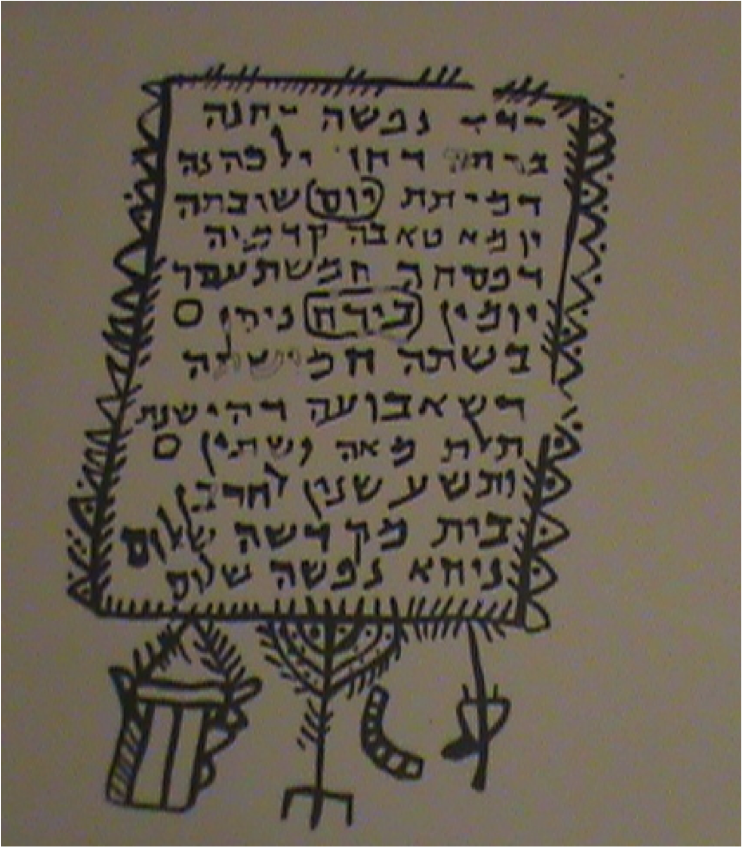 נפשה חנה
ילכהנה
דמיתת יום שובתה
יומא טאבה קדמיה
דפסחה חמשת עשר
יומין בירח ניסן
בשתה חמישיתה
דשאבועה דהי שנת
תלת מאה ושתין
ותשע שנין לחרבן
בית מקדשה שלום
ניחא נפשה שלום